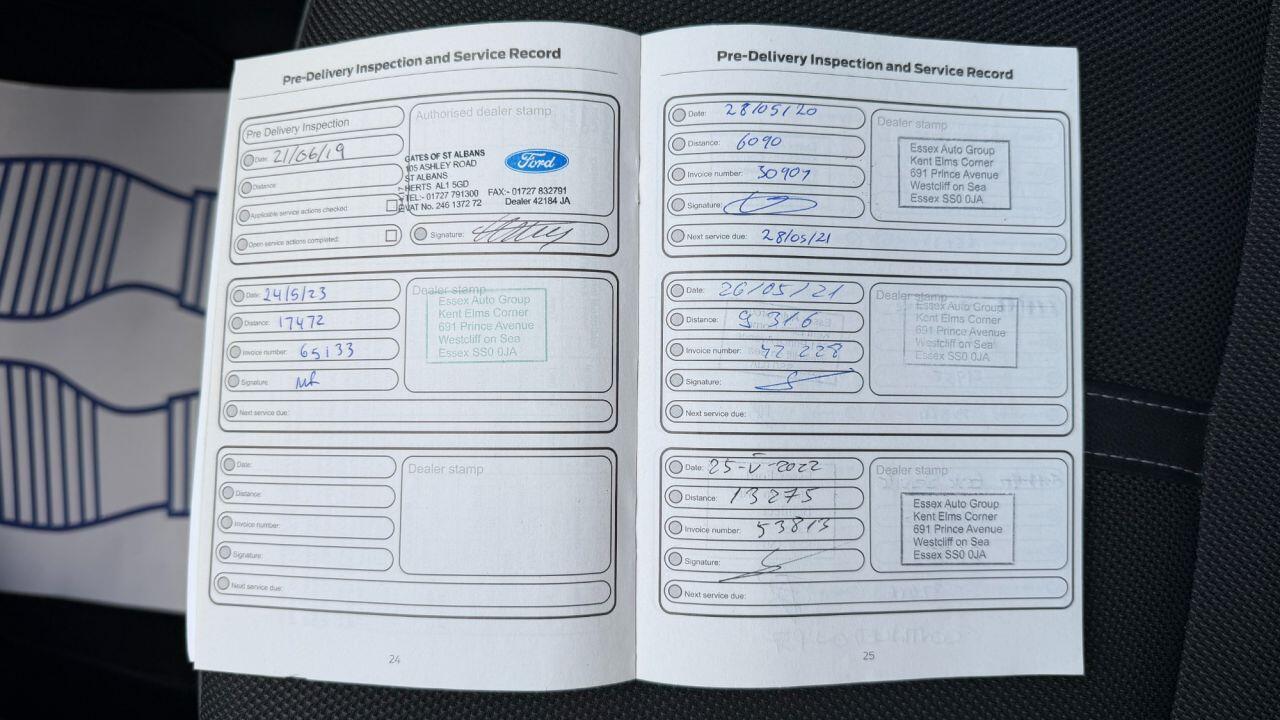 Pre-Delivery Inspection and Service Record
Pre Delivery Inspection
Date: 21/06/19
Distance:
Applicable service actions checked:
Open service actions completed:
Authorised dealer stamp
GATES OF ST ALBANS
105 ASHLEY ROAD
ST ALBANS
HERTS AL1 5GD
TEL:- 01727 791300 FAX:- 01727 832791
VAT No. 246 1372 72 Dealer 42184 JA
Ford
Signature:
Date: 24/5/23
Distance: 17472
Invoice number: 65133
Signature:
Next service due:
Dealer stamp
Essex Auto Group
Kent Elms Corner
691 Prince Avenue
Westcliff on Sea
Essex SS0 0JA
Date:
Distance:
Invoice number:
Signature:
Next service due:
Dealer stamp
24
Pre-Delivery Inspection and Service Record
Date: 28/05/20
Distance: 6090
Invoice number: 30907
Signature:
Next service due: 28/05/21
Dealer stamp
Essex Auto Group
Kent Elms Corner
691 Prince Avenue
Westcliff on Sea
Essex SS0 0JA
Date: 26/05/21
Distance: 9316
Invoice number: 42228
Signature:
Next service due:
Dealer stamp
Essex Auto Group
Kent Elms Corner
691 Prince Avenue
Westcliff on Sea
Essex SS0 0JA
Date: 25-V-2022
Distance: 13275
Invoice number: 53813
Signature:
Next service due:
Dealer stamp
Essex Auto Group
Kent Elms Corner
691 Prince Avenue
Westcliff on Sea
Essex SS0 0JA
25